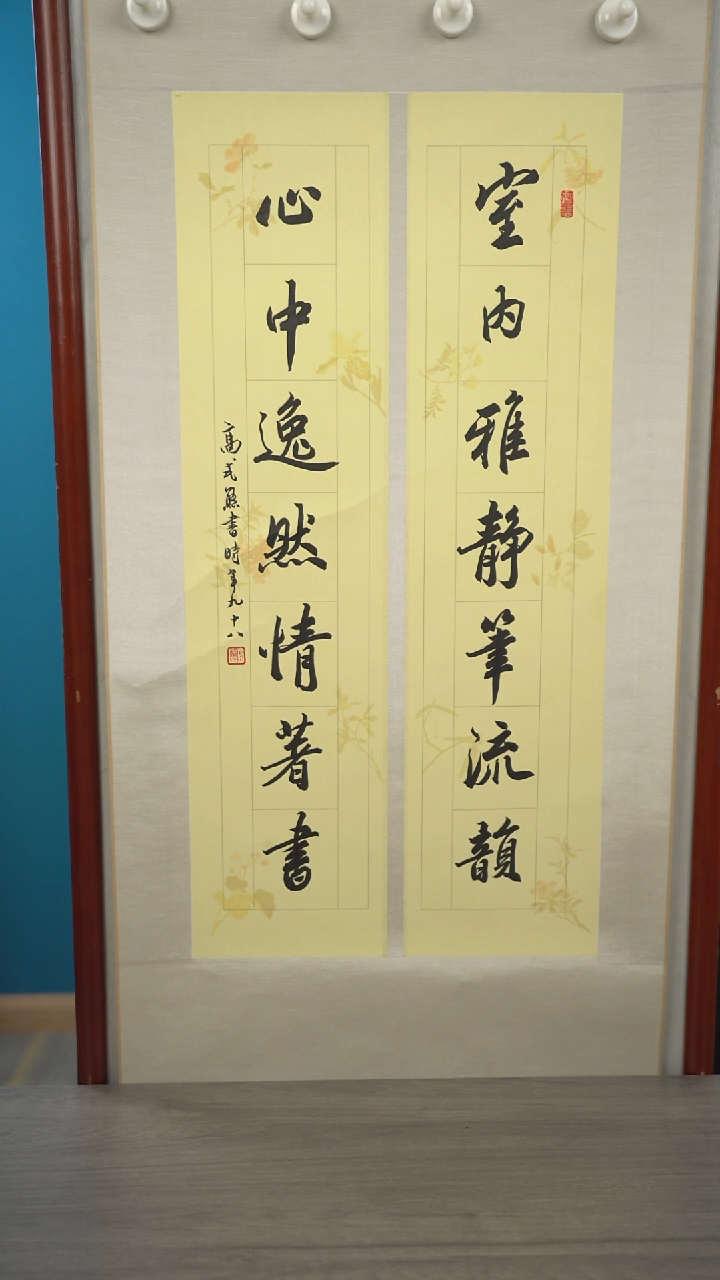 室内雅静筆流韻
心中逸然情著書
高式熊書時年九十八